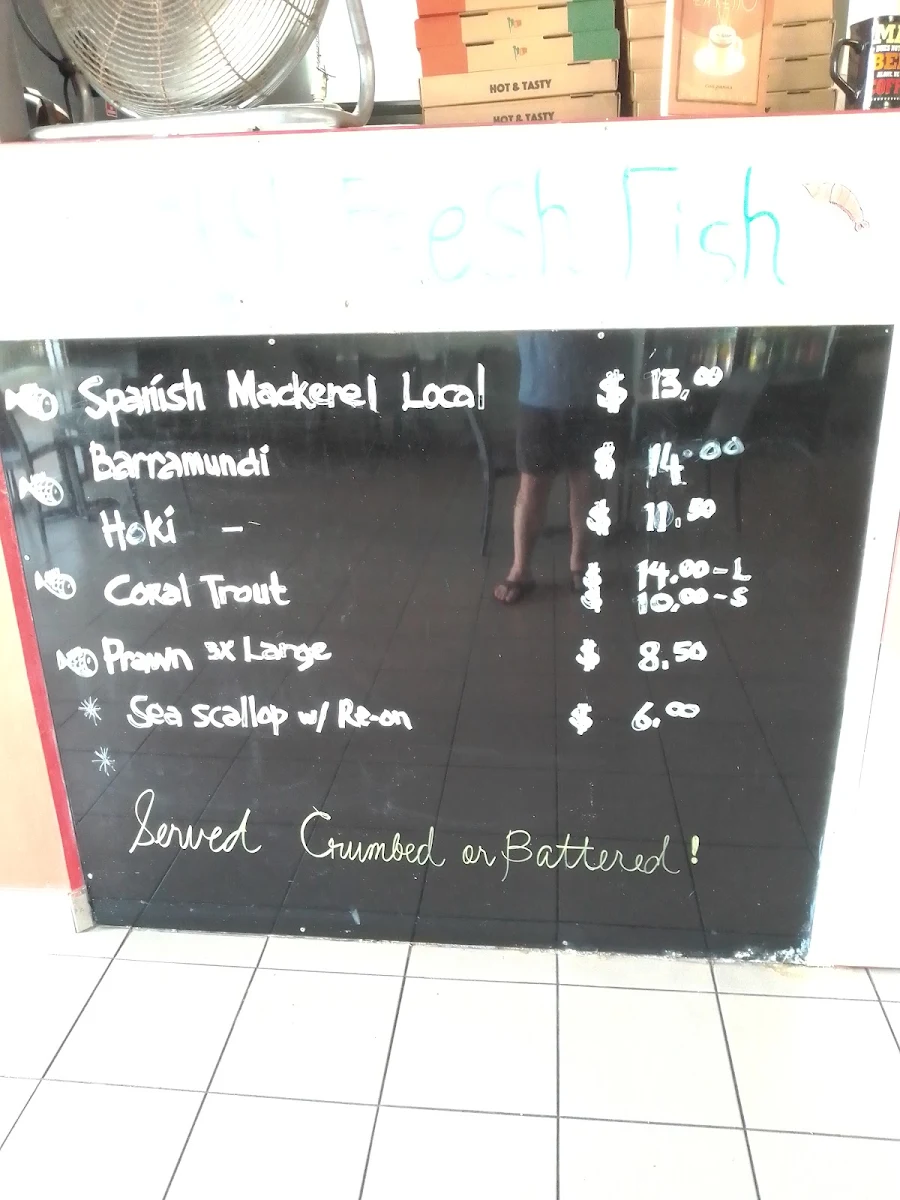 HOT & TASTY
HOT & TASTY
Fresh Fish
Spanish Mackerel Local $ 13.00
Barramundi $ 14.00
Hoki - $ 11.50
Coral Trout $ 14.00-L
$ 10.00-S
Prawn 3X Large $ 8.50
Sea scallop w/ Re-on $ 6.00
Served Crumbed or Battered!